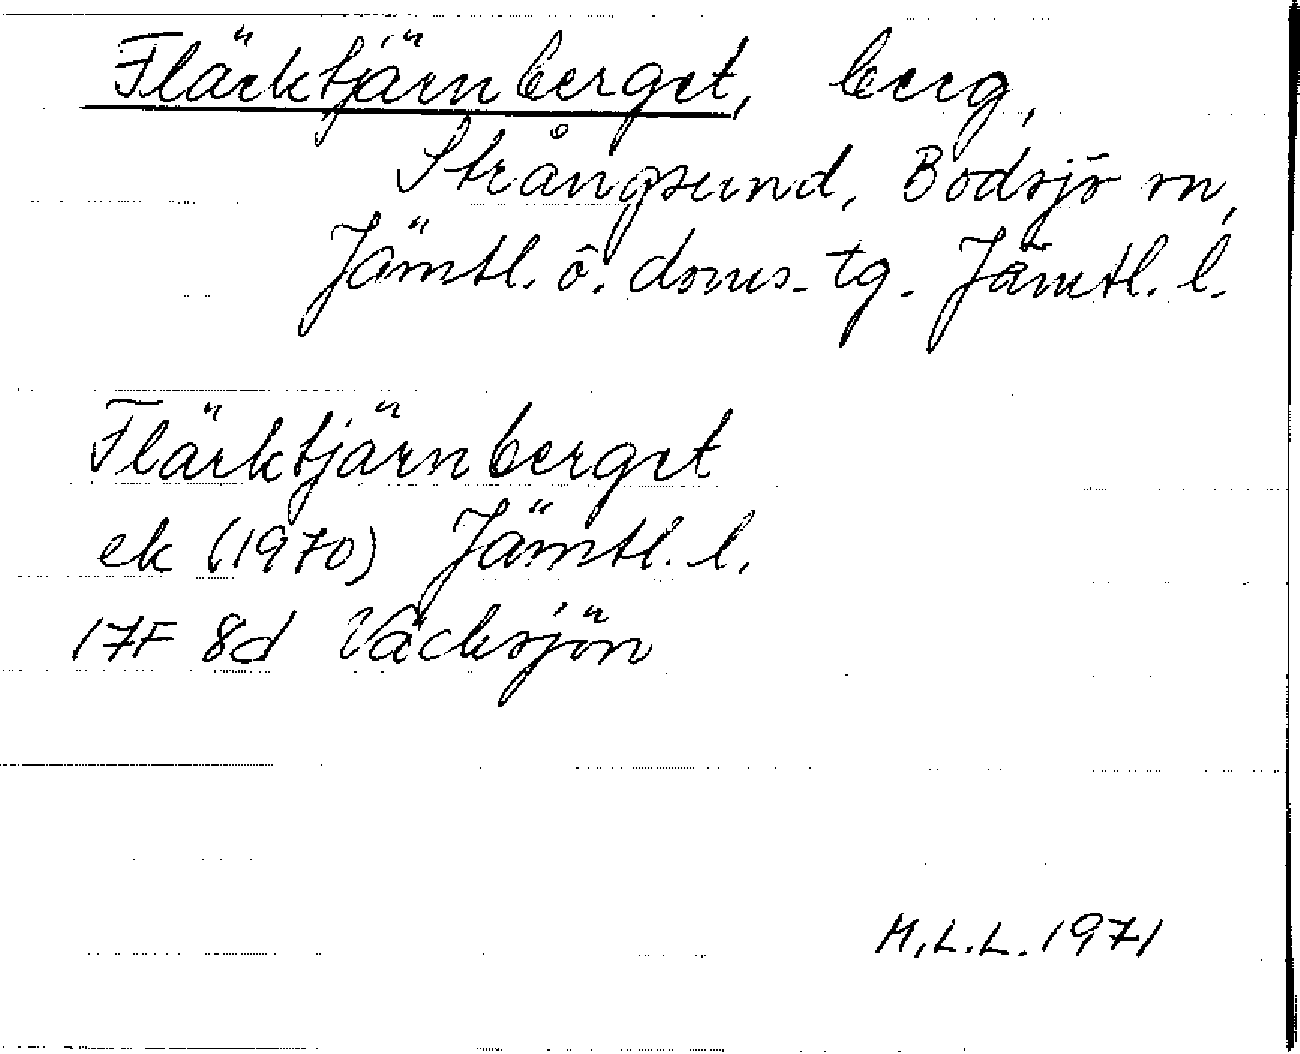 Flärktjärnberget, berg,
Strångsund, Bodsjö sn,
Jämtl. ö. doms. tg. Jämtl. l.
Flärktjärnberget
ek (1970) Jämtl. l.
17F 8d Väcksjön
M.L.L. 1971